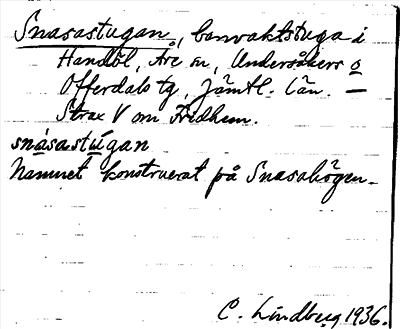 Snasastugan, banvaktstuga i
Handöl, Åre sn, Undersåkers o
Offerdals tg, Jämtl. län. —
Strax V om Fridhem.
snásastùgan
Namnet konstruerat på Snasahögen.
C. Lindberg 1936.